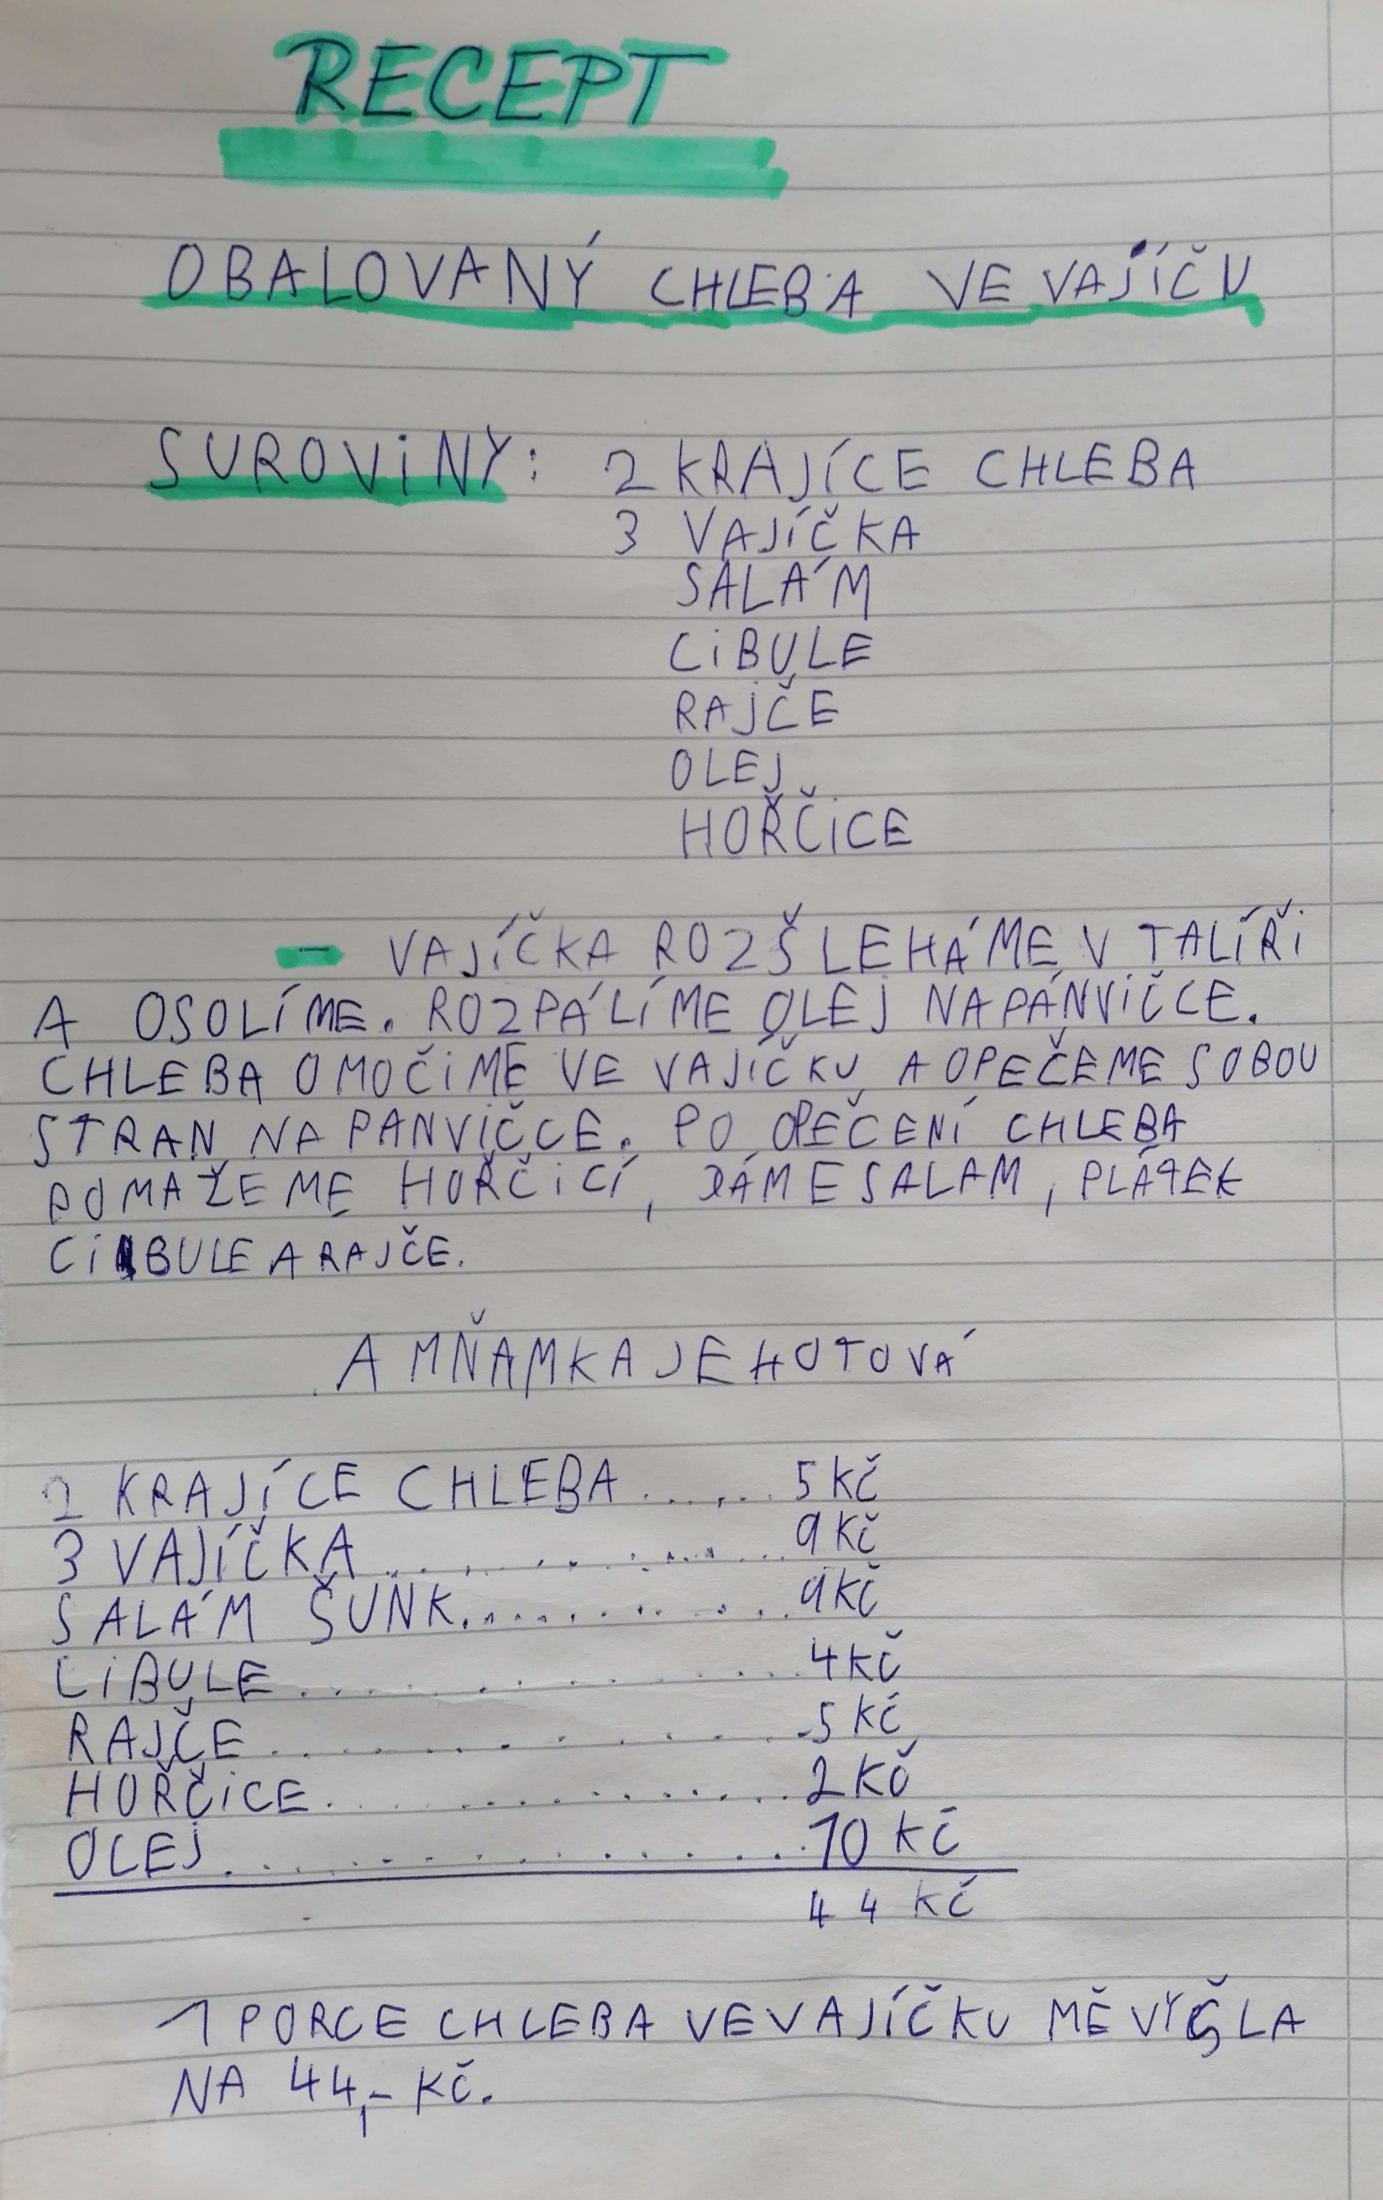 RECEPT
OBALOVANÝ CHLEBA VE VAJÍČU
SUROVINY: 2 KRAJÍCE CHLEBA
3 VAJÍČKA
SALÁM
CIBULE
RAJČE
OLEJ
HOŘČICE
- VAJÍČKA ROZŠLEHÁME V TALÍŘI
A OSOLÍME. ROZPÁLÍME OLEJ NA PÁNVIČCE.
CHLEBA OMOČIME VE VAJÍČKU A OPEČEME S OBOU
STRAN NA PANVIČCE. PO OPEČENÍ CHLEBA
POMAŽEME HOŘČICÍ, DÁME SALAM, PLÁTEK
CIBULE A RAJČE.
A MŇAMKA JE HOTOVÁ
2 KRAJÍCE CHLEBA ...... 5 KČ
3 VAJÍČKA ............ 9 KČ
SALÁM ŠUNK........... 9 KČ
CIBULE ............ 4 KČ
RAJČE ............ 5 KČ
HOŘČICE ............ 2 KČ
OLEJ ............ 10 KČ
44 KČ
1 PORCE CHLEBA VE VAJÍČKU MĚ VYŠLA
NA 44,- KČ.